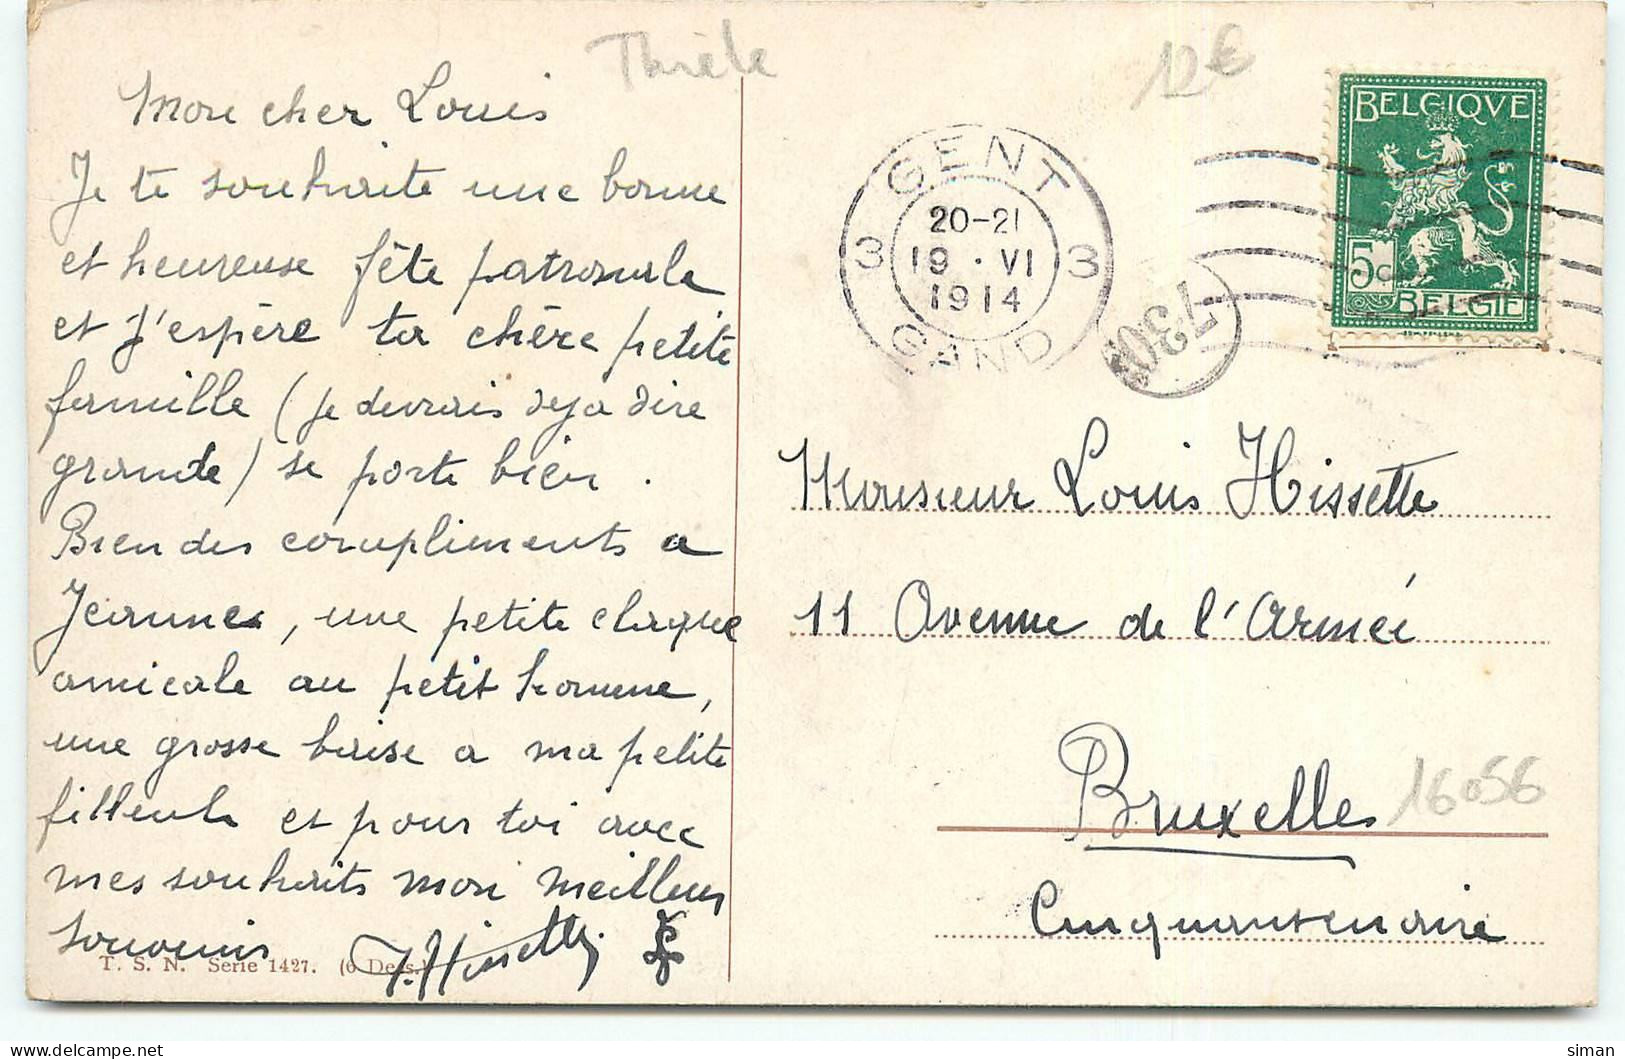 Thièle
12€
Mon cher Louis
Je te souhaite une bonne
et heureuse fête patronale
et j'espère ta chère petite
famille (je devrais deja dire
grande) se porte bien.
Bien des compliments a
Jeanne, une petite claque
amicale au petit homme,
une grosse baise a ma petite
filleule et pour toi avec
mes souhaits mon meilleur
souvenir J. Hissette
T. S. N. Serie 1427. (6 Dess.)
GENT
3 20-21 3
19 · VI
1914
GAND
730
BELGIQVE
5c
BELGIË
Monsieur Louis Hissette
11 Avenue de l'Armée
Bruxelles
16056
Cinquantenaire
siman
delcampe.net